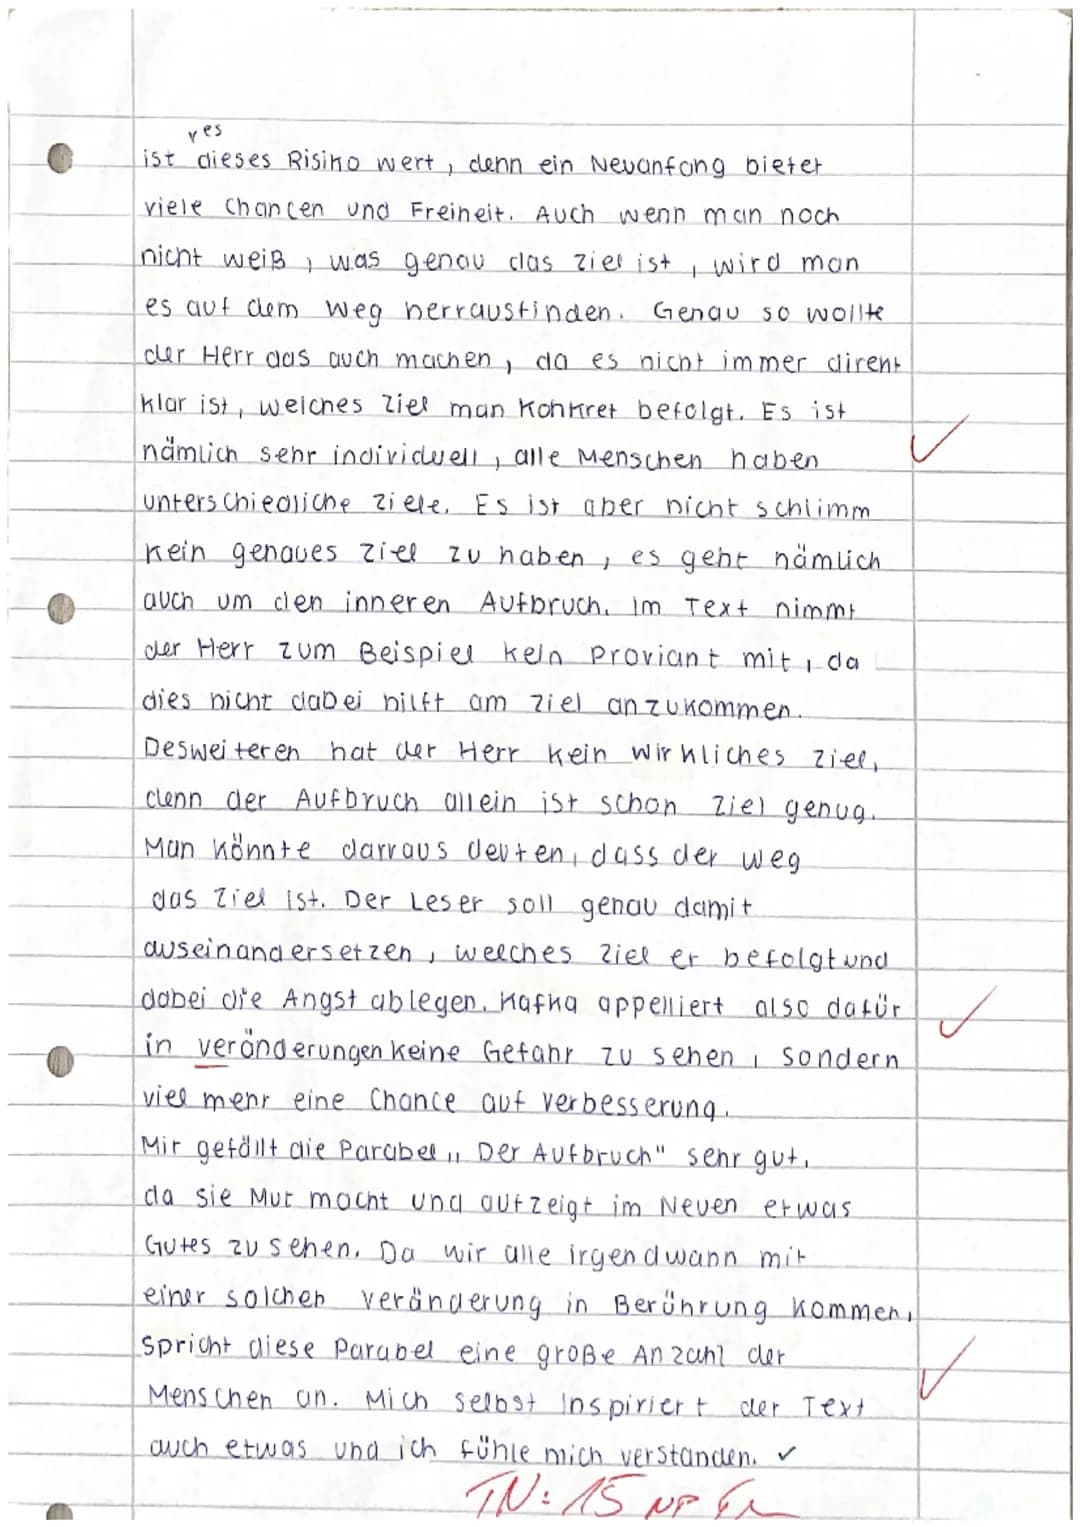 es
ist dieses Risiko wert, denn ein Neuanfang bietet
viele Chancen und Freiheit. Auch wenn man noch
nicht weiß, was genau das Ziel ist, wird man
es auf dem Weg herrausfinden. Genau so wollte
der Herr das auch machen, da es nicht immer direkt
klar ist, welches Ziel man konkret befolgt. Es ist
nämlich sehr individuell, alle Menschen haben
unterschiedliche Ziele. Es ist aber nicht schlimm
kein genaues Ziel zu haben, es geht nämlich
auch um den inneren Aufbruch. Im Text nimmt
der Herr zum Beispiel kein Proviant mit, da
dies nicht dabei hilft am Ziel anzukommen.
Desweiteren hat der Herr kein wirkliches Ziel,
denn der Aufbruch allein ist schon Ziel genug.
Man könnte darraus deuten, dass der Weg
das Ziel ist. Der Leser soll genau damit
auseinandersetzen, welches Ziel er befolgt und
dabei die Angst ablegen. Kafka appelliert also dafür
in veränderungen keine Gefahr zu sehen, sondern
viel mehr eine Chance auf Verbesserung.
Mir gefällt die Parabel „Der Aufbruch" sehr gut,
da sie Mut macht und aufzeigt im Neuen etwas
Gutes zu sehen. Da wir alle irgendwann mit
einer solchen Veränderung in Berührung kommen,
spricht diese Parabel eine große Anzahl der
Menschen an. Mich selbst inspiriert der Text
auch etwas und ich fühle mich verstanden. ✓
TN: 15 NP